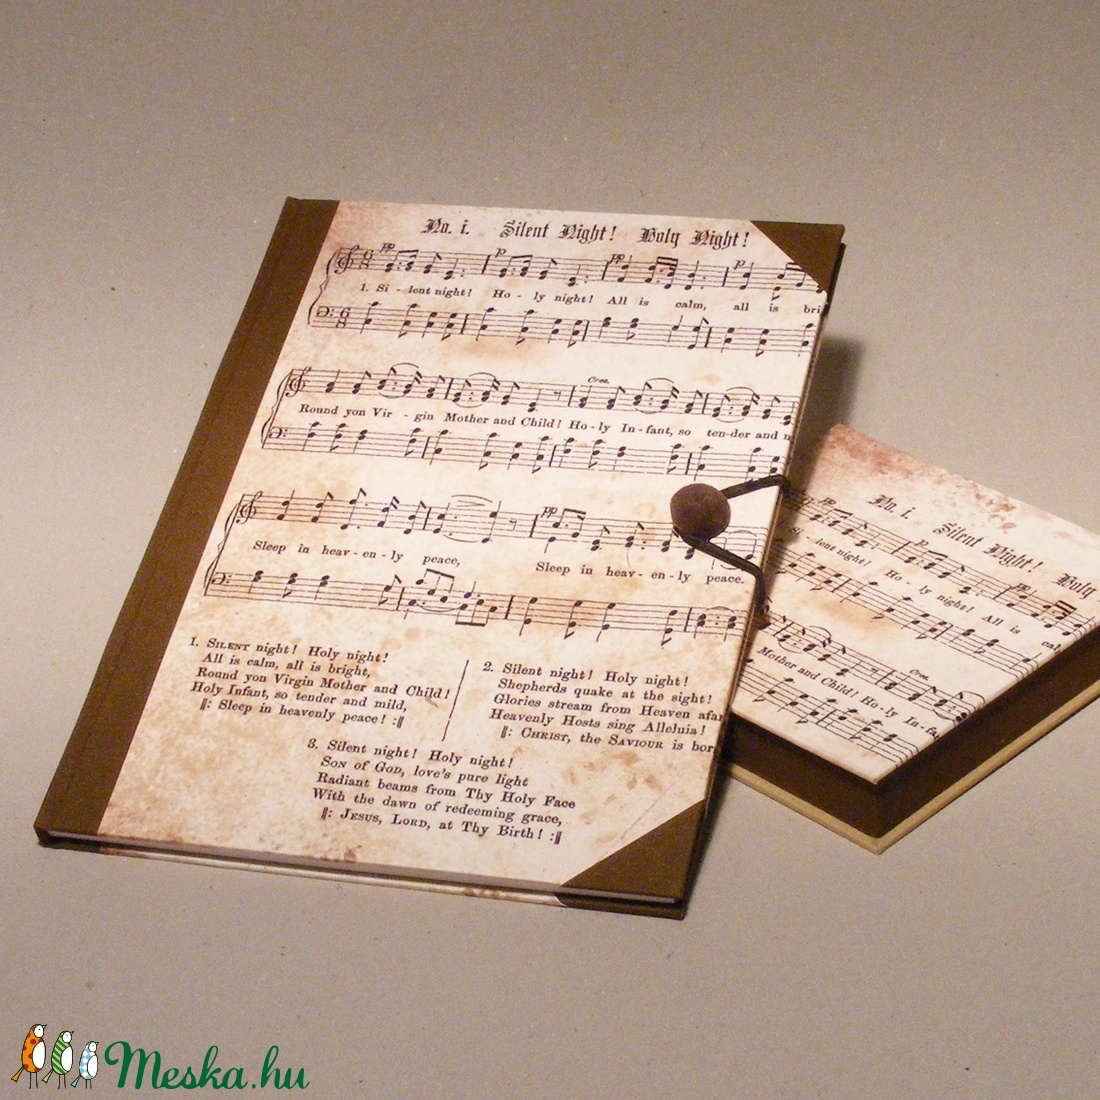 No. i. Silent Night! Holy Night!
pp p pp p
1. Si - lent night! Ho - ly night! All is calm, all is bri
Cres.
Round yon Vir - gin Mother and Child! Ho - ly In - fant, so ten-der and
pp
Sleep in heav - en - ly peace, Sleep in heav - en - ly peace.
1. SILENT night! Holy night!
All is calm, all is bright,
Round yon Virgin Mother and Child!
Holy Infant, so tender and mild,
𝄆: Sleep in heavenly peace! :𝄇
2. Silent night! Holy night!
Shepherds quake at the sight!
Glories stream from Heaven afar
Heavenly Hosts sing Alleluia!
𝄆: CHRIST, the SAVIOUR is bor
3. Silent night! Holy night!
SON of GOD, love's pure light
Radiant beams from Thy Holy Face
With the dawn of redeeming grace,
𝄆: JESUS, LORD, at Thy Birth! :𝄇
No. i. Silent Night! Holy
pp p pp
Si - lent night! Ho - ly night! All is cal
Cres.
Mother and Child! Ho - ly In - fa
Meska.hu